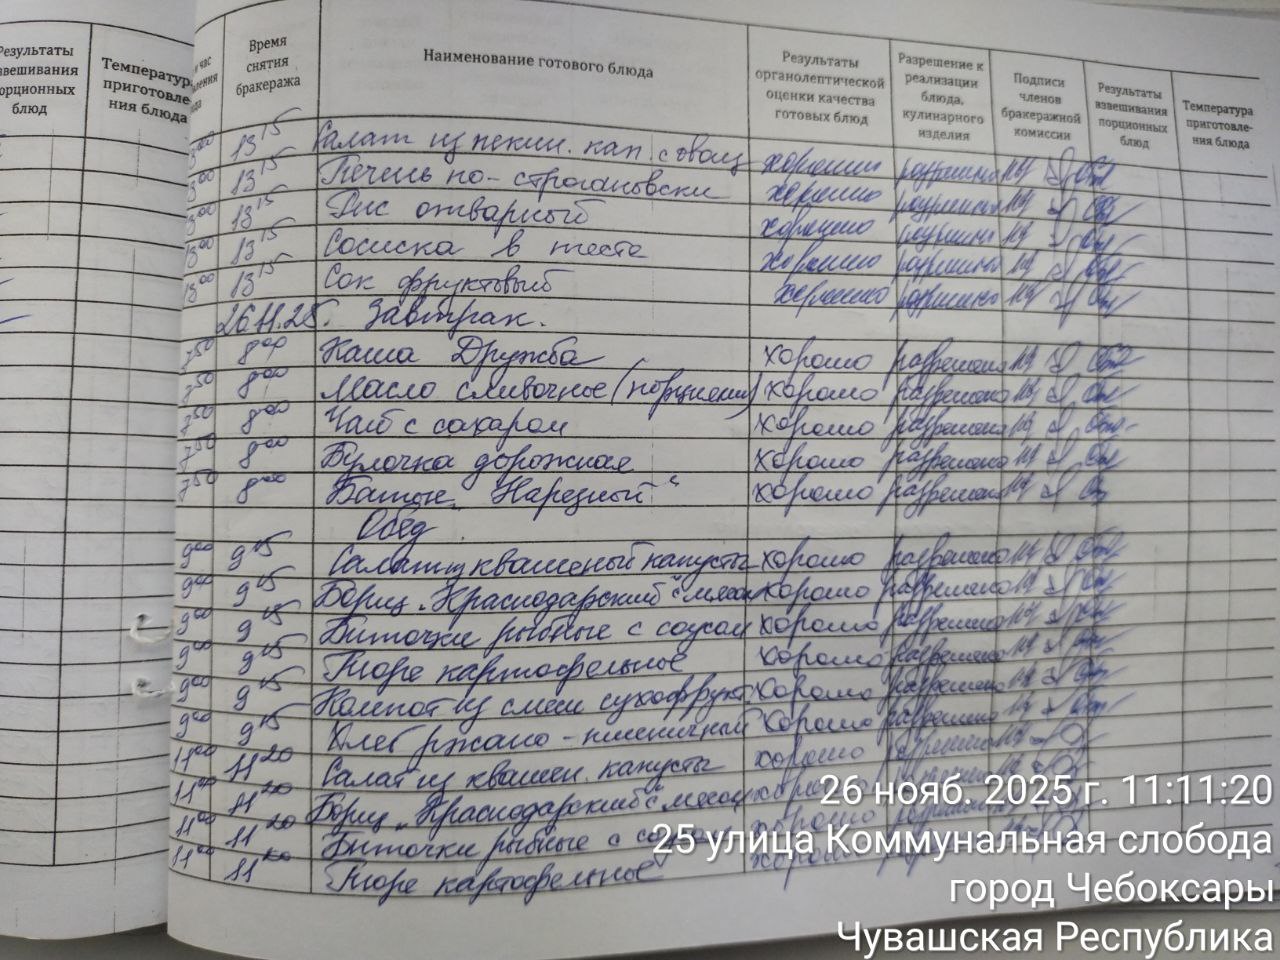 Результаты взвешивания порционных блюд
Температура приготовления блюда
час
Время снятия бракеража
Наименование готового блюда
Результаты органолептической оценки качества готовых блюд
Разрешение к реализации блюда, кулинарного изделия
Подписи членов бракеражной комиссии
Результаты взвешивания порционных блюд
Температура приготовле-ния блюда
13 00 13 15 Салат из пекин. кап. с овощ хорошо разрешено
13 00 13 15 Печень по-строгановски хорошо разрешено
13 00 13 15 Рис отварный хорошо разрешено
13 00 13 15 Сосиска в тесте хорошо разрешено
13 00 13 15 Сок фруктовый хорошо разрешено
26.11.25. Завтрак.
7 50 8 00 Каша Дружба хорошо разрешено
7 50 8 00 Масло сливочное (порциями) хорошо разрешено
7 50 8 00 Чай с сахаром хорошо разрешено
7 50 8 00 Булочка дорожная хорошо разрешено
7 50 8 00 Батон „Нарезный“ хорошо разрешено
Обед
9 00 9 15 Салат из квашеный капусты хорошо разрешено
9 00 9 15 Борщ „Краснодарский“ с мясом хорошо разрешено
9 00 9 15 Биточки рыбные с соусом хорошо разрешено
9 00 9 15 Пюре картофельное хорошо разрешено
9 00 9 15 Компот из смеси сухофрукт. хорошо разрешено
9 00 9 15 Хлеб ржано-пшеничный хорошо разрешено
11 00 11 20 Салат из квашен. капусты хорошо разрешено
11 00 11 20 Борщ „Краснодарский“ с мясом
11 00 11 20 Биточки рыбные с
11 00 11 20 Пюре картофельное хорошо
26 нояб. 2025 г. 11:11:20
25 улица Коммунальная слобода
город Чебоксары
Чувашская Республика